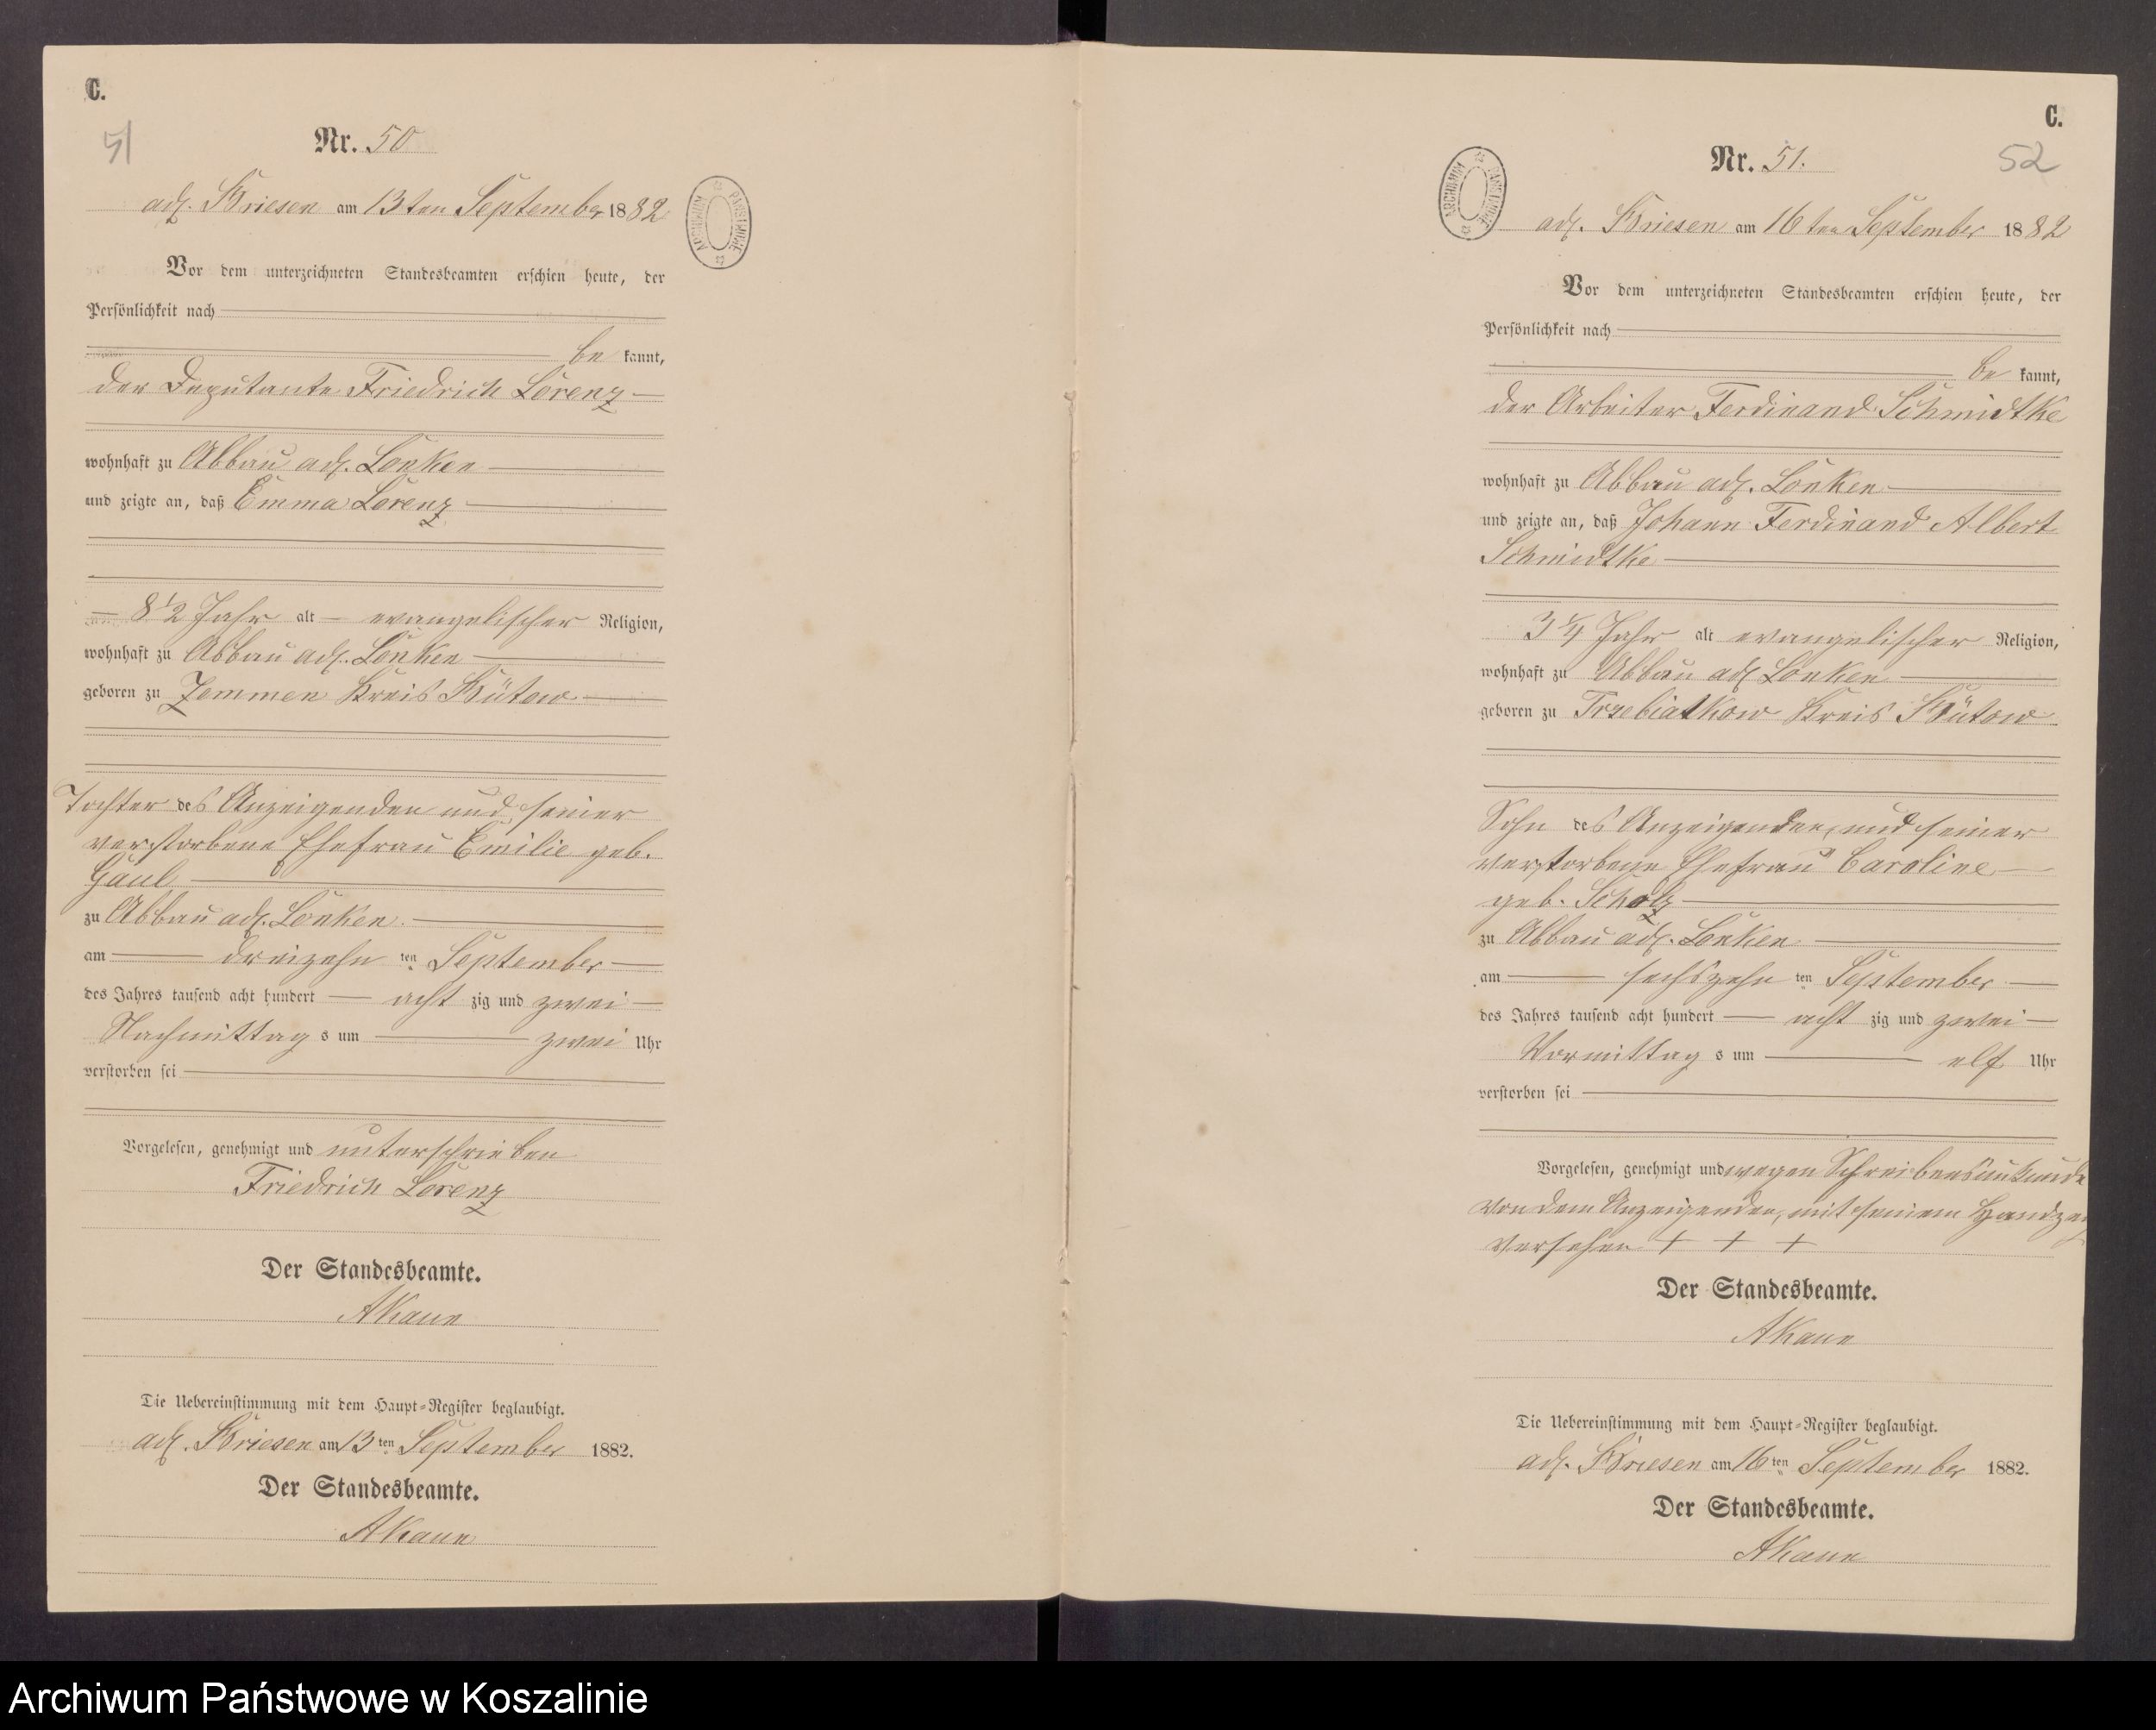 C.
51
Nr. 50
adl. Briesen am 13ten September 1882
ARCHIWUM PAŃSTWOWE
Vor dem unterzeichneten Standesbeamten erschien heute, der
Persönlichkeit nach
be kannt,
der Deputante Friedrich Lorenz
wohnhaft zu Abbau adl. Lonken
und zeigte an, daß Emma Lorenz
8 1/2 Jahr alt evangelischer Religion,
wohnhaft zu Abbau adl. Lonken
geboren zu Zemmen Kreis Bütow
Tochter des Anzeigenden und seiner
verstorbene Ehefrau Emilie geb.
Gaul
zu Abbau adl. Lonken
am dreizehn ten September
des Jahres tausend acht hundert acht zig und zwei
Nachmittag s um zwei Uhr
verstorben sei
Vorgelesen, genehmigt und unterschrieben
Friedrich Lorenz
Der Standesbeamte.
AKaun
Die Uebereinstimmung mit dem Haupt-Register beglaubigt.
adl. Briesen am 13 ten September 1882.
Der Standesbeamte.
AKaun
C.
52
Nr. 51.
ARCHIWUM PAŃSTWOWE
adl. Briesen am 16ten September 1882
Vor dem unterzeichneten Standesbeamten erschien heute, der
Persönlichkeit nach
be kannt,
der Arbeiter Ferdinand Schmidtke
wohnhaft zu Abbau adl. Lonken
und zeigte an, daß Johann Ferdinand Albert
Schmidtke
3 1/4 Jahr alt evangelischer Religion,
wohnhaft zu Abbau adl Lonken
geboren zu Trzebiatkow Kreis Bütow
Sohn des Anzeigenden, und seiner
verstorbene Ehefrau Caroline
geb. Scholz
zu Abbau adl. Lonken
am sechszehn ten September
des Jahres tausend acht hundert acht zig und zwei
Vormittag s um elf Uhr
verstorben sei
Vorgelesen, genehmigt und wegen Schreibensunkunde
von dem Anzeigenden, mit seinem Handzei
versehen + + +
Der Standesbeamte.
AKaun
Die Uebereinstimmung mit dem Haupt-Register beglaubigt.
adl. Briesen am 16 ten September 1882.
Der Standesbeamte.
AKaun
Archiwum Państwowe w Koszalinie